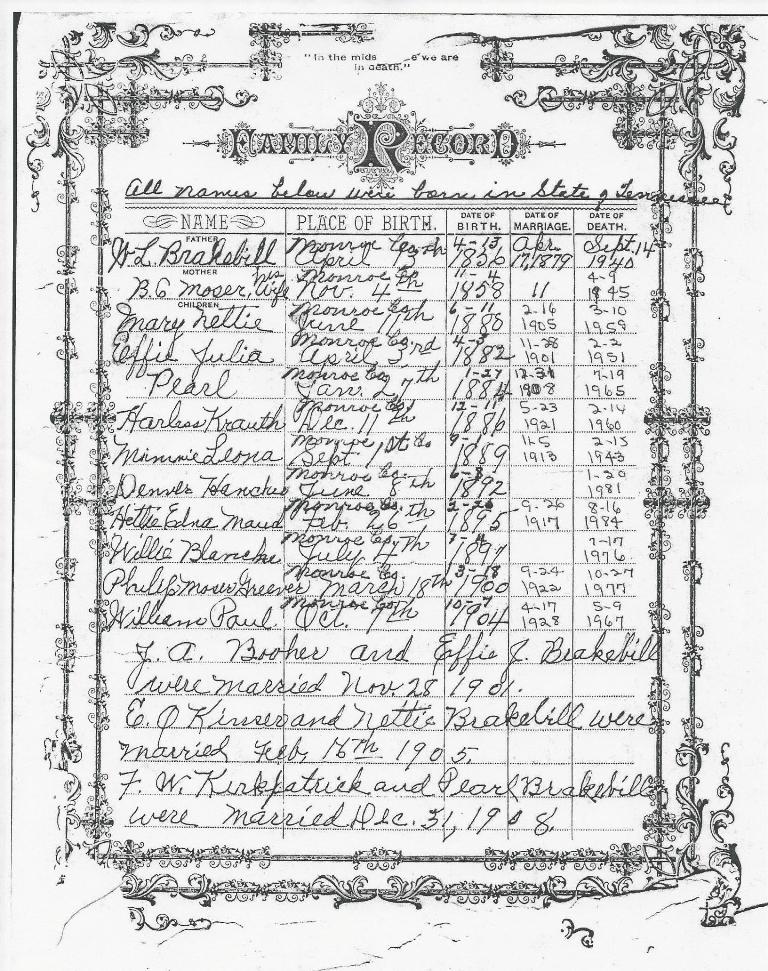 "In the mids e we are
in death."
FAMILY RECORD
All names below were born in State of Tennessee
NAME PLACE OF BIRTH. DATE OF BIRTH. DATE OF MARRIAGE. DATE OF DEATH.
FATHER
W L. Brakebill Monroe Co. April 13th 4-13, 1856 Apr. 17, 1879 Sept. 14 1940
MOTHER
B. C. Moser, his Wife Monroe Co Nov. 4th 11-4 1858 11 4-9 1945
CHILDREN
Mary Nettie Monroe Co June 11th 6-11 1880 2-16 1905 3-10 1959
Effie Julia Monroe Co. April 3rd 4-3 1882 11-28 1901 2-2 1951
Pearl Monroe Co, Jan. 27th 1-27 1884 12-31 1908 7-19 1965
Harless Krauth Monroe Co, Dec. 11th 12-11 1886 5-23 1921 2-14 1960
Minnie Leona Monroe Co Sept. 1st 9-1 1889 1913 2-15 1943
Denver Monroe Co. June 8th 6-8 1892 1-20 1981
Hettie Edna Maud Monroe Co. Feb. 26th 2-26 1895 9-26 1917 8-16 1984
Willie Blanche Monroe Co, July 4th 7-4 1897 7-17 1976
Philip Moser Greever Monroe Co. March 18th 3-18 1900 9-24 1922 10-27 1977
William Paul Monroe Co, Oct. 7th 10-7 1904 4-17 1928 5-9 1967
J. A. Booher and Effie J. Brakebill
were married Nov. 28 1901.
E. O Kinser and Nettie Brakebill were
married Feb, 16th 1905.
F. W. Kirkpatrick and Pearl Brakebill
were married Dec. 31, 1908.